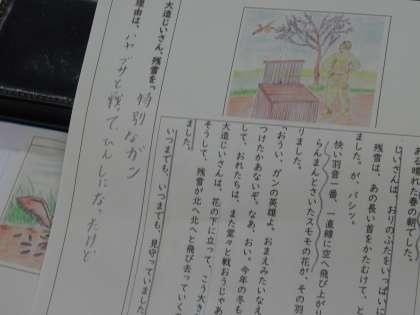 ある晴れた春の朝でした。
じいさんは、おりのふたをいっぱいに
残雪は、あの長い首をかたむけて、と
ました。が、バシッ。
快い羽音一番、一直線に空へ飛び上がり
らんまんとさいたスモモの花が、その羽
りました。
おうい、ガンの英雄よ。おまえみたいなえ
つけたかあないぞ。なあ、おい。今年の冬も
して、おれたちは、また堂々と戦おうじゃあ
大造じいさんは、花の下に立って、こう大き
そうして、残雪が北へ北へと飛び去っていく
ました。
いつまでも、いつまでも、見守っていました
大造じいさん、残雪を「特別なガン
理由は、ハヤブサと戦って、ひんしになったけど